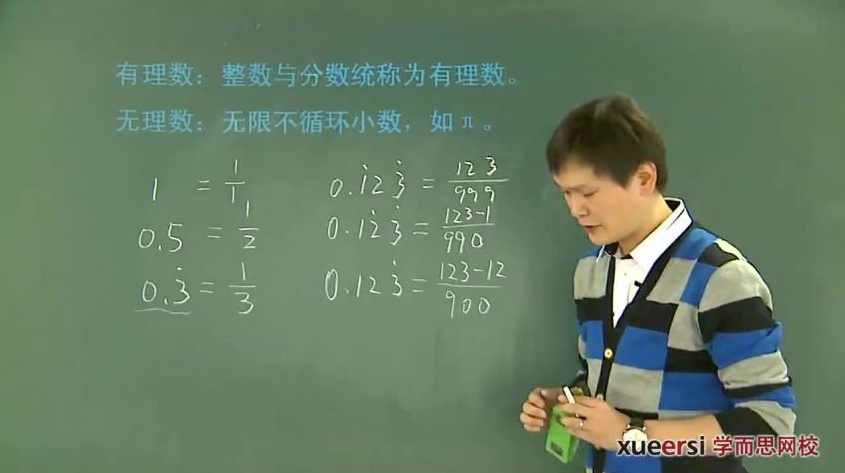 有理数：整数与分数统称为有理数。
无理数：无限不循环小数，如π。
1 = 1/1
0.5 = 1/2
0.3̇ = 1/3
0.1̇23̇ = 123/999
0.12̇3̇ = 123-1/990
0.123̇ = 123-12/900
xueersi 学而思网校